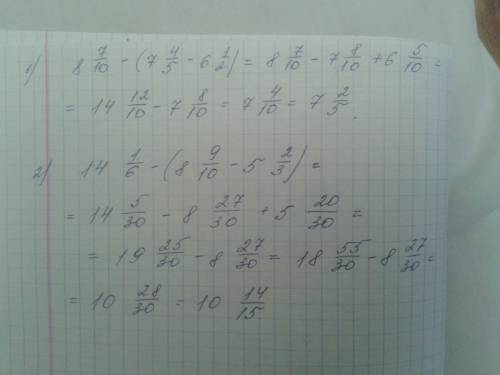 1) 8 7/10 - (7 4/5 - 6 1/2) = 8 7/10 - 7 8/10 + 6 5/10 =
= 14 12/10 - 7 8/10 = 7 4/10 = 7 2/5.
2) 14 1/6 - (8 9/10 - 5 2/3) =
= 14 5/30 - 8 27/30 + 5 20/30 =
= 19 25/30 - 8 27/30 = 18 55/30 - 8 27/30 =
= 10 28/30 = 10 14/15